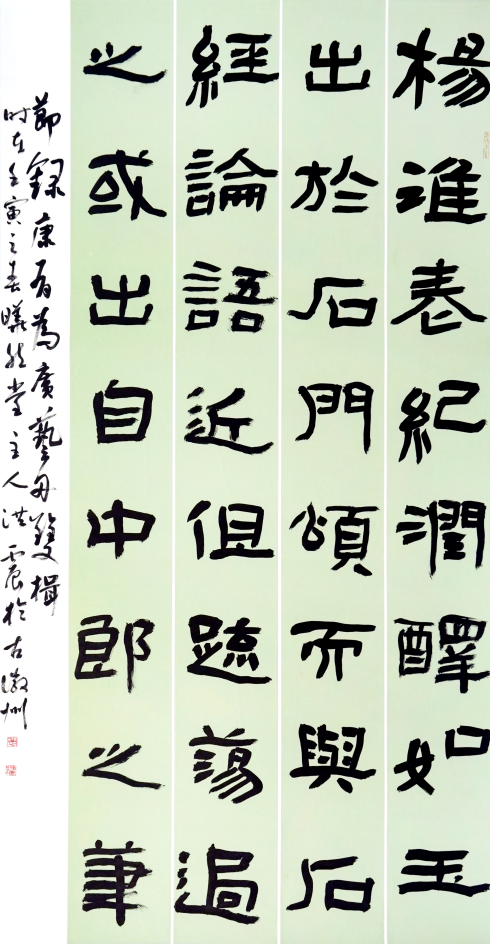 楊淮表紀潤醳如玉
出於石門頌而與石
經論語近但疏蕩過
之或出自中郎之筆
節錄康有為廣藝舟雙楫
时在壬寅之春曦然堂主人洪震於古徽州